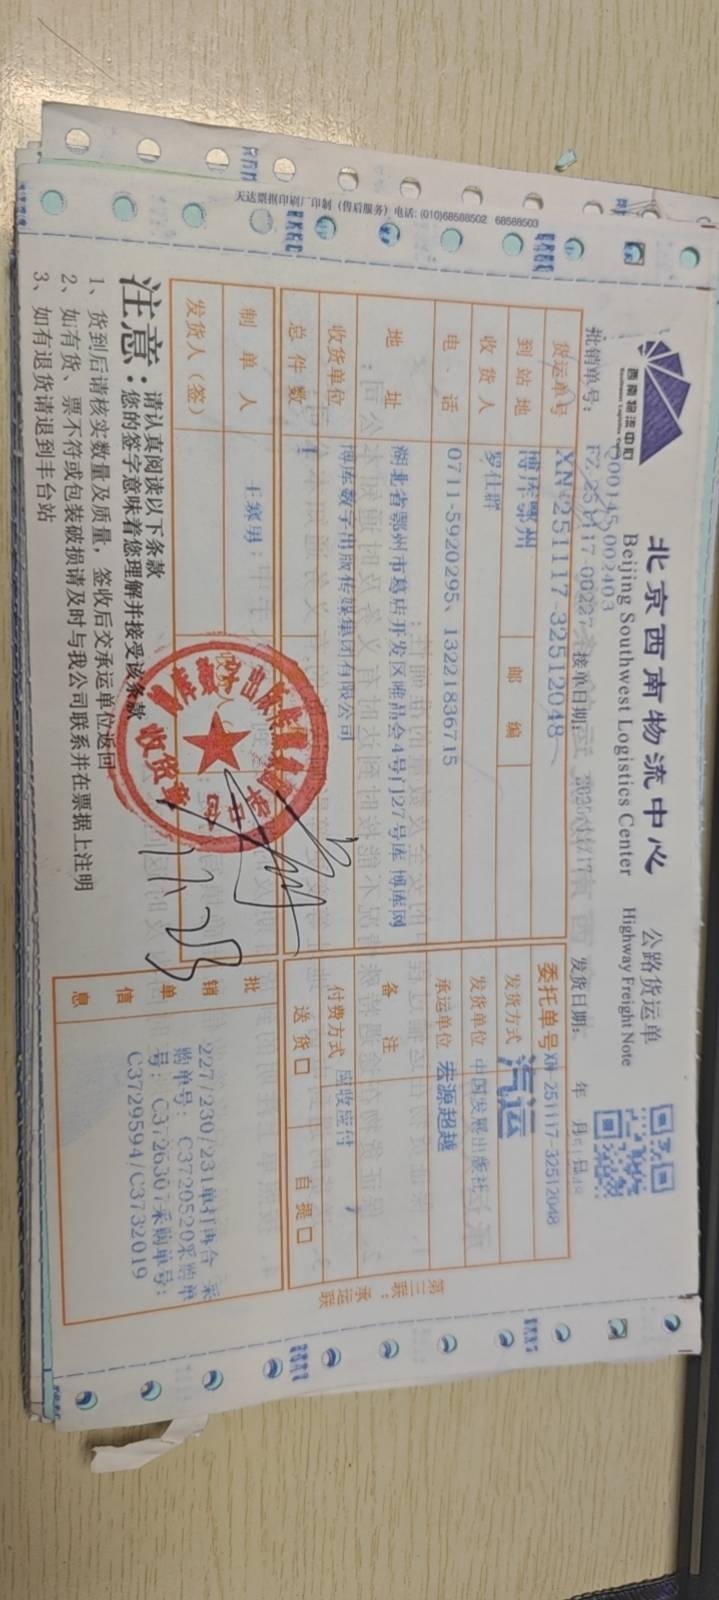 天达票据印刷厂印制（售后服务）电话: (010)68588502 68588503
西南物流中心
北京西南物流中心 公路货运单
Beijing Southwest Logistics Center Highway Freight Note
批销单号: 接单日期: 发货日期: 年 月 日
货运单号 XN-251117-32512048 委托单号 XN-251117-32512048
到站地 博库鄂州 邮编 发货方式 汽运
收货人 罗仕群 发货单位 中国发展出版社
电话 0711-5920295、13221836715 承运单位 宏源超越
地址 湖北省鄂州市葛店开发区唯品会4号门27号库 博库网 备注
收货单位 博库数字出版传媒集团有限公司 付费方式 应收应付
总件数 1 送货□ 自提□
制单人
发货人（签）
收货章
11.23
批销单信息
227/230/231单打再合 采
购单号: C3720520采购单
号: C3726307采购单号:
C3729594/C3732019
第三联：承运联
注意：请认真阅读以下条款
您的签字意味着您理解并接受该条款
1、货到后请核实数量及质量，签收后交承运单位返回
2、如有货、票不符或包装破损请及时与我公司联系并在票据上注明
3、如有退货请退到丰台站